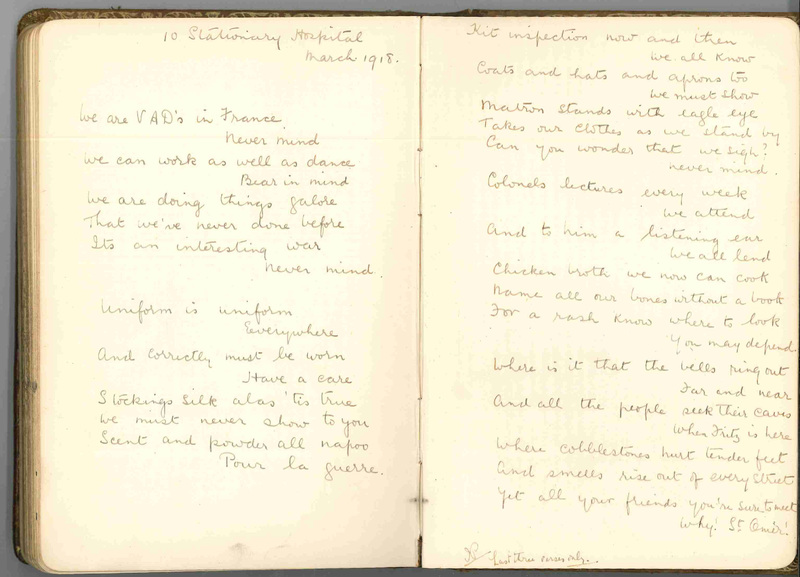 10 Stationary Hospital
March 1918.
We are VAD's in France
Never mind
We can work as well as dance
Bear in mind
We are doing things galore
That we've never done before
Its an interesting war
Never mind.
Uniform is uniform
Everywhere
And correctly must be worn
Have a care
Stockings silk alas 'tis true
We must never show to you
Scent and powder all napoo
Pour la guerre.
Kit inspection now and then
We all know
Coats and hats and aprons too
We must show
Matron stands with eagle eye
Takes our clothes as we stand by
Can you wonder that we sigh?
never mind.
Colonels lectures every week
We attend
And to him a listening ear
We all lend
Chicken broth we now can cook
Name all our bones without a book
For a rash know where to look
You may depend
Where is it that the bells ring out
Far and near
And all the people seek their caves
When Fritz is here
Where cobblestones hurt tender feet
And smells rise out of every street
Yet all your friends you're sure to meet
Why! St Omer!
Last three verses only.